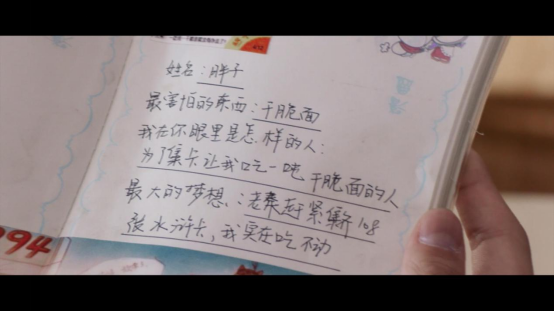 姓名：胖子
最害怕的东西：干脆面
我在你眼里是怎样的人：
为了集卡让我吃一吨干脆面的人
最大的梦想：老秦赶紧集齐108
张水浒卡，我实在吃不动
994